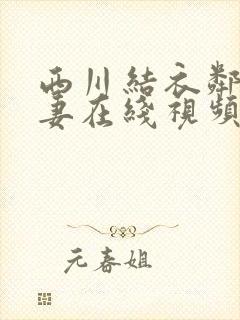 西川結衣鄰
妻在綫視頻
元春姐